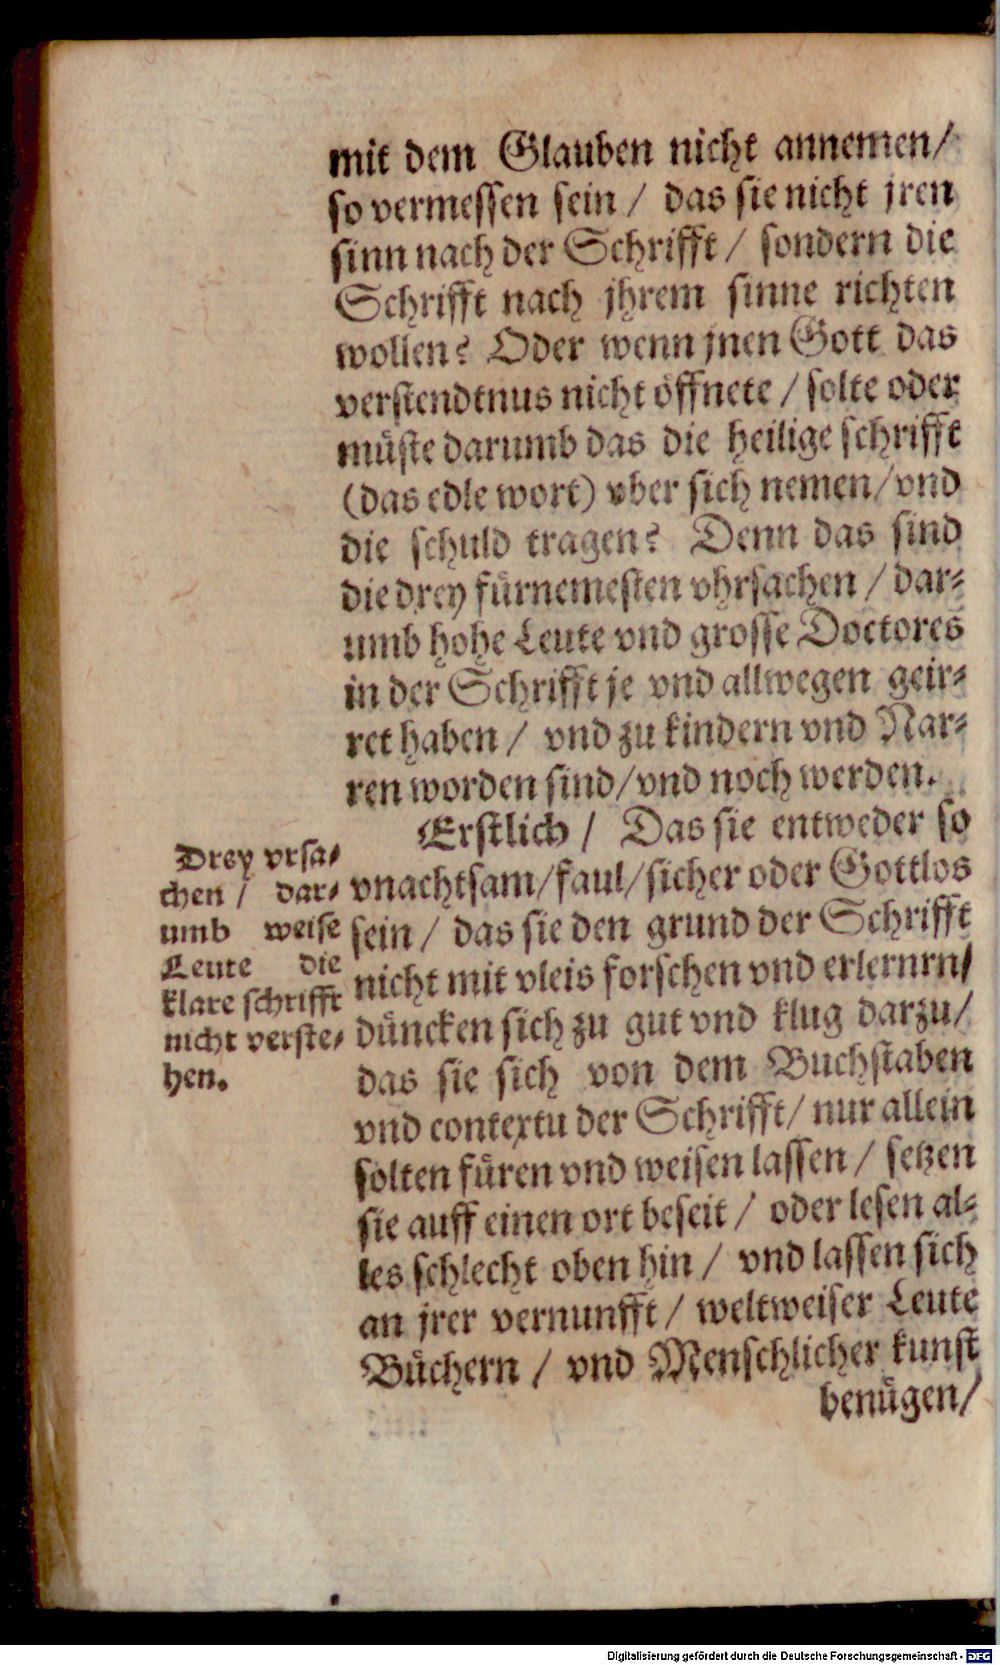 mit dem Glauben nicht annemen/
so vermessen sein / das sie nicht jren
sinn nach der Schrifft / sondern die
Schrifft nach jhrem sinne richten
wollen? Oder wenn jnen Gott das
verstendtnus nicht öffnete / solte oder
müste darumb das die heilige schrifft
(das edle wort) vber sich nemen/vnd
die schuld tragen? Denn das sind
die drey fürnemesten vhrsachen / dar-
umb hohe Leute vnd grosse Doctores
in der Schrifft je vnd allwegen geir-
ret haben / vnd zu kindern vnd Nar-
ren worden sind/vnd noch werden.
Erstlich / Das sie entweder so
vnachtsam/faul/sicher oder Gottlos
sein / das sie den grund der Schrifft
nicht mit vleis forschen vnd erlernrn/
düncken sich zu gut vnd klug darzu/
das sie sich von dem Buchstaben
vnd contextu der Schrifft/ nur allein
solten füren vnd weisen lassen / setzen
sie auff einen ort beseit / oder lesen al-
les schlecht oben hin / vnd lassen sich
an jrer vernunfft / weltweiser Leute
Büchern / vnd Menschlicher kunst
benügen/
Drey vrsa-
chen / dar-
umb weise
Leute die
klare schrifft
nicht verste-
hen.
Digitalisierung gefördert durch die Deutsche Forschungsgemeinschaft - DFG